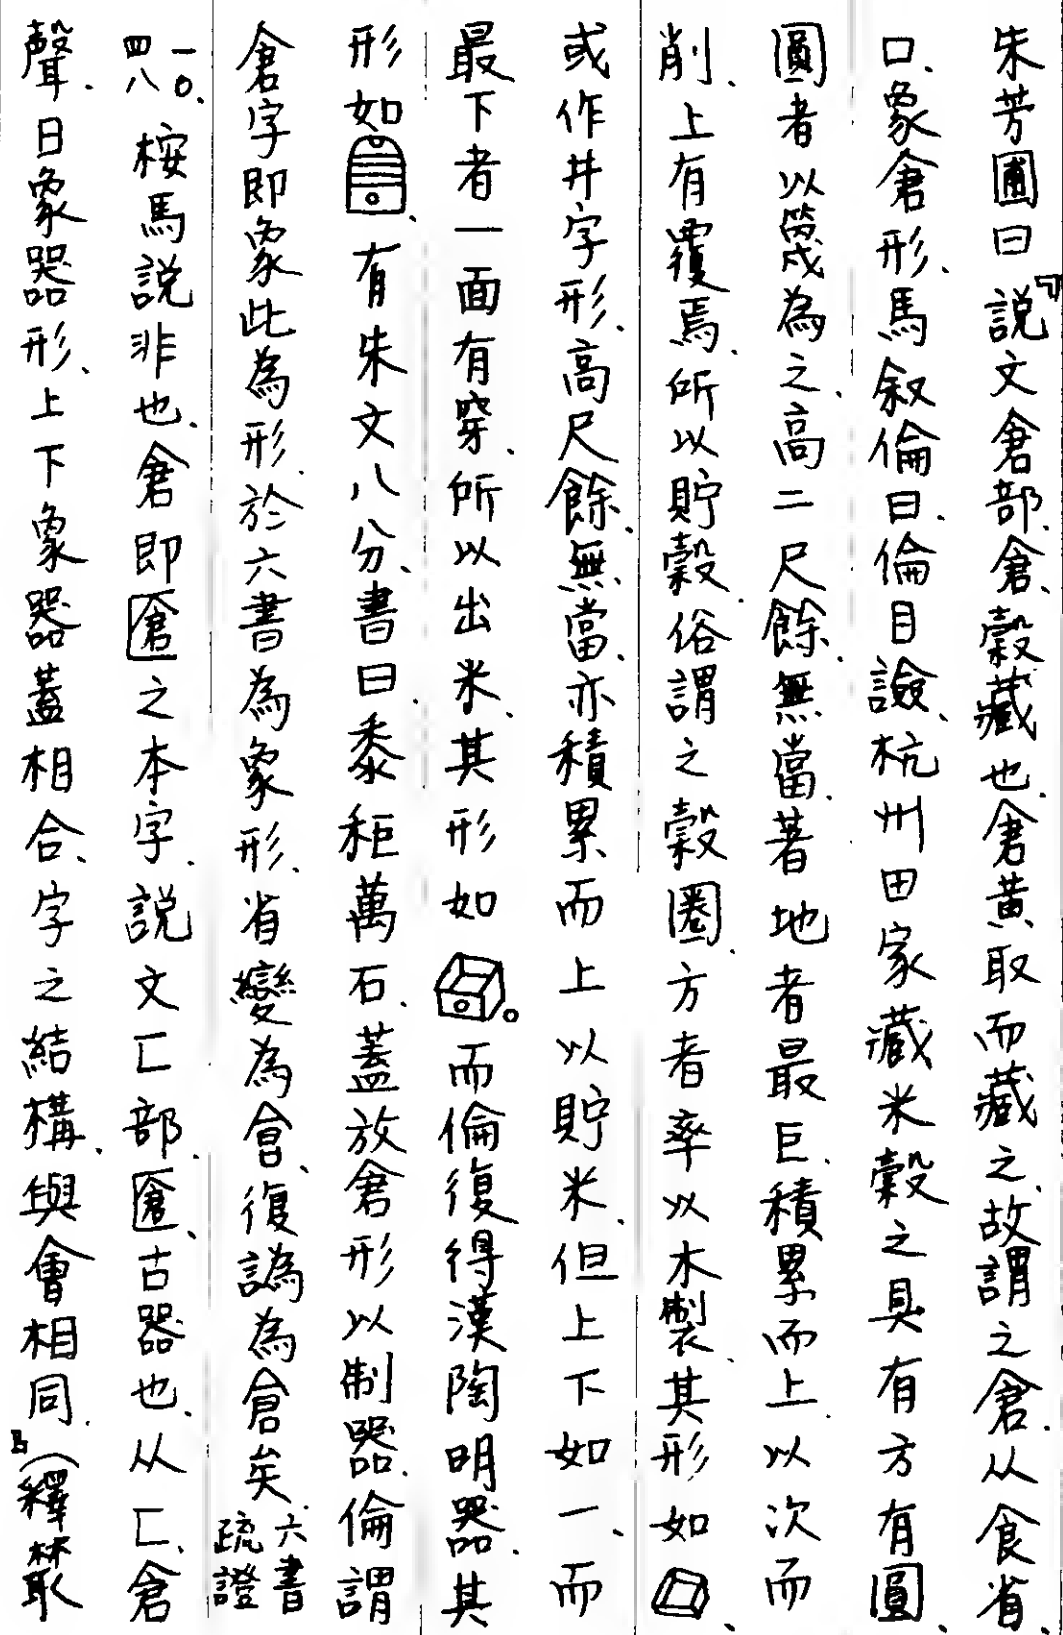 朱芳圃曰「説文倉部、倉、穀藏也、倉黄取而藏之、故謂之倉、从食省、
口、象倉形、馬叙倫曰、倫目譣、杭州田家藏米穀之具有方有圓、
圓者以篾為之、高二尺餘、無當、著地者最巨、積累而上、以次而
削、上有覆焉、所以貯穀、俗謂之穀圈、方者率以木製、其形如、
或作井字形、高尺餘、無當、亦積累而上以貯米、但上下如一、而
最下者一面有穿、所以出米、其形如。而倫復得漢陶明器、其
形如、有朱文八分、書曰、黍秬萬石、蓋放倉形以制器、倫謂
倉字即象此為形、於六書為象形、省變為倉、復譌為倉矣、六書疏證
一〇、四八桉馬説非也、倉即匫之本字、説文匚部、匫、古器也、从匚、倉
聲、日象器形、上下象器蓋相合、字之結構、與會相同、」（釋叢